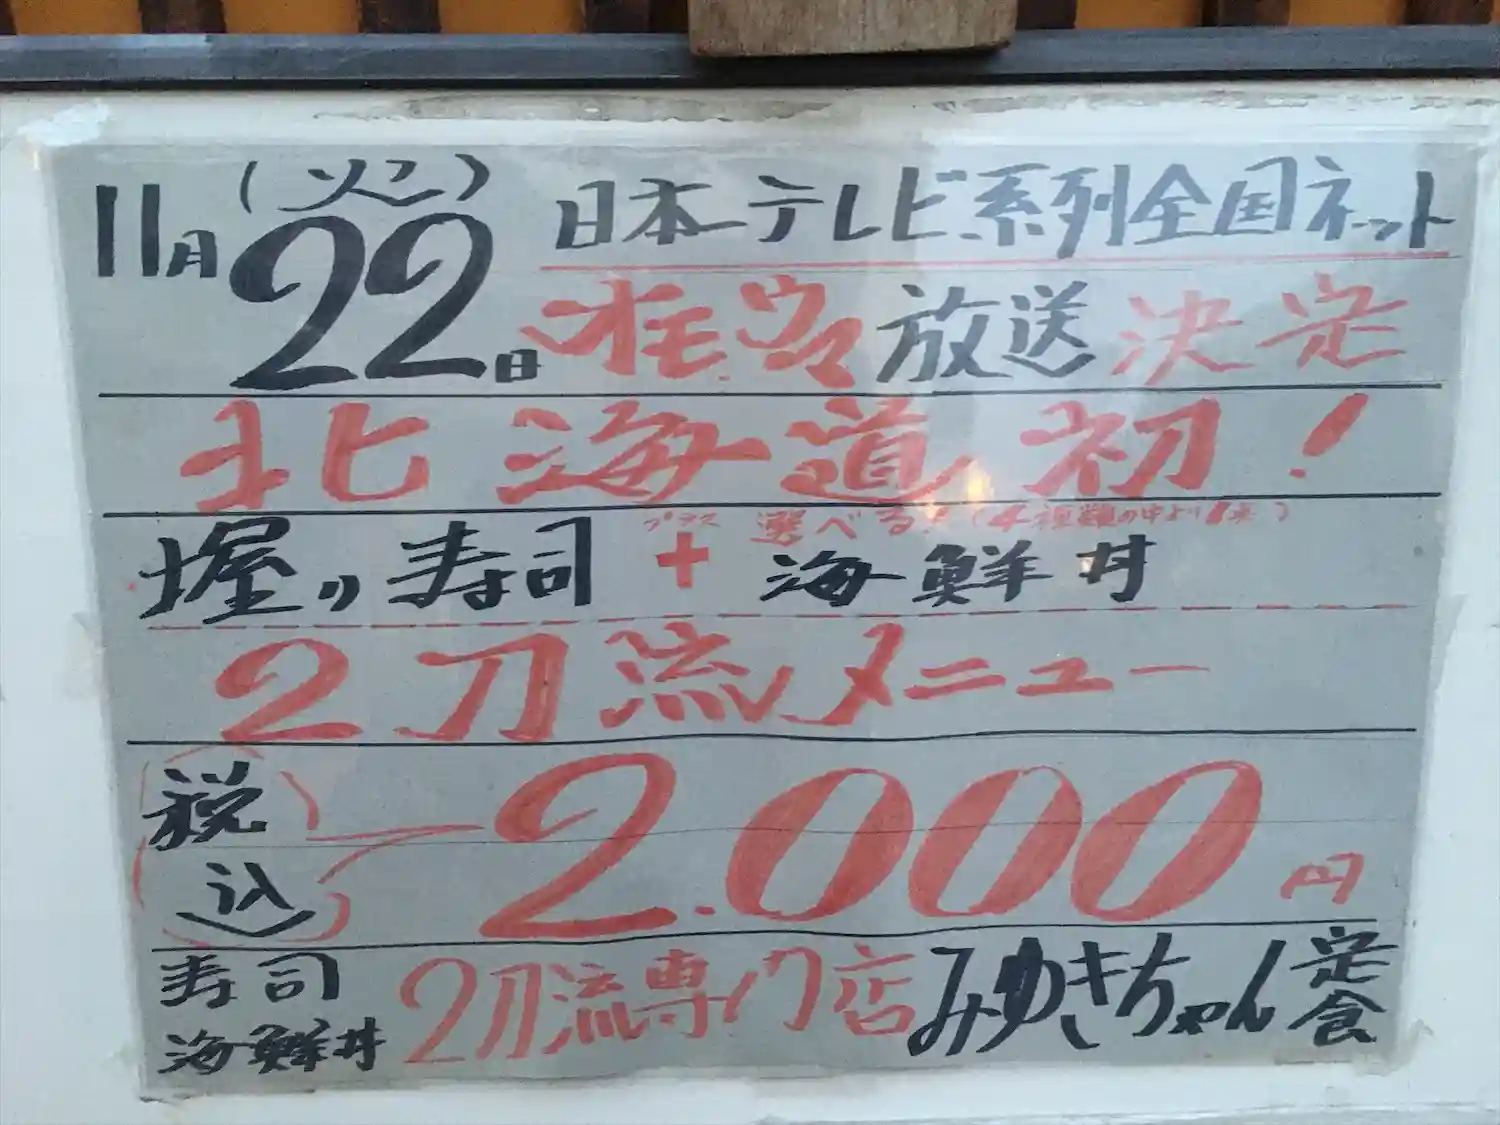 11月22日(火)
日本テレビ系列全国ネット
オモウマ放送決定
北海道初!
プラス 選べる!(4種類の中より1点)
握り寿司+海鮮丼
2刀流メニュー
税込 2.000円
寿司 海鮮丼 2刀流専門店 みゆきちゃん定食